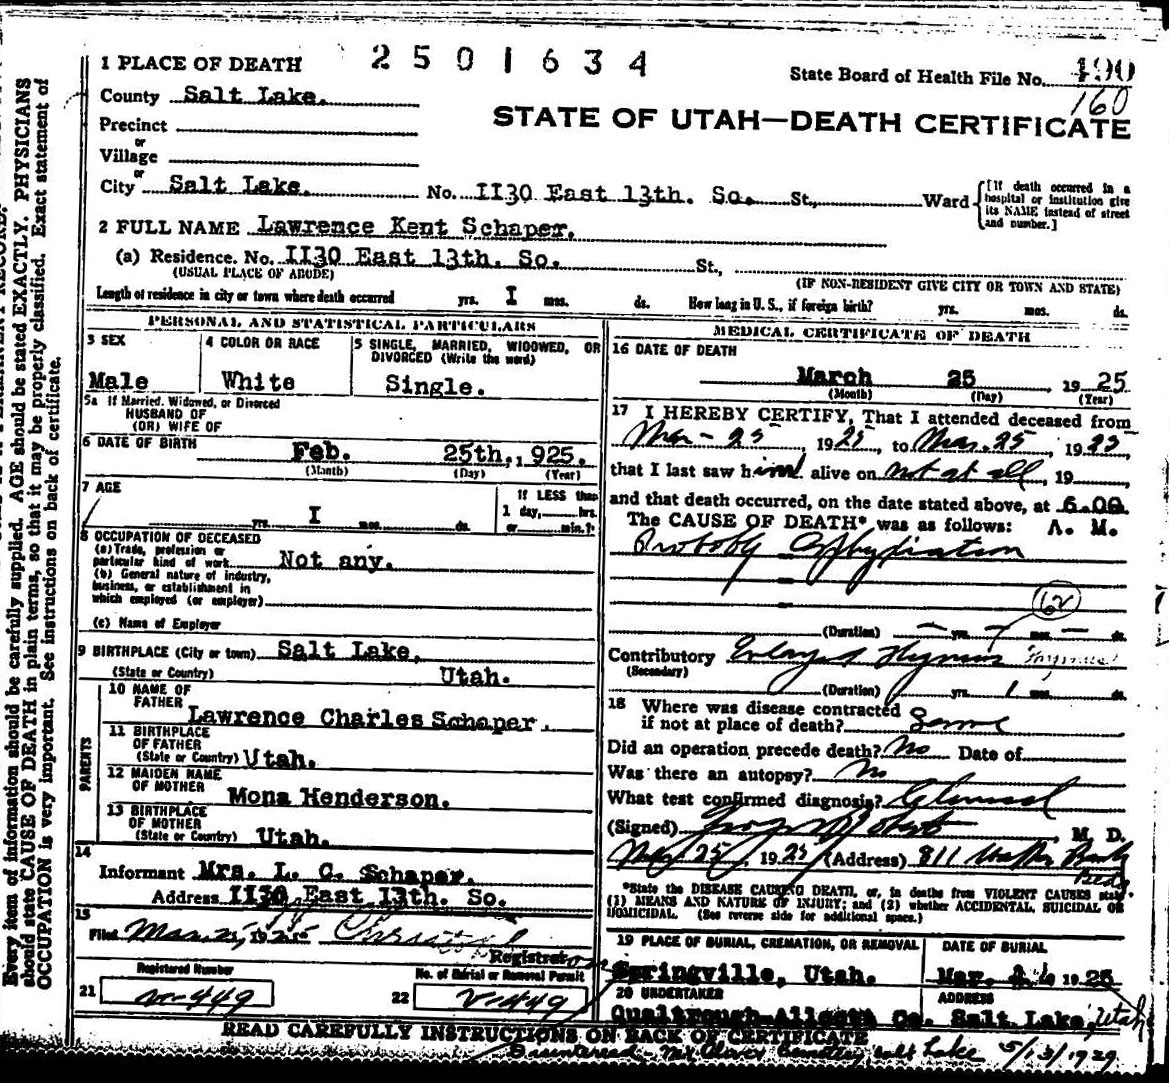 2501634
1 PLACE OF DEATH
State Board of Health File No. 490
160
County Salt Lake.
STATE OF UTAH—DEATH CERTIFICATE
Precinct
or
Village
or
City Salt Lake. No. II30 East 13th. So. St., Ward
[If death occurred in a hospital or institution give its NAME instead of street and number.]
2 FULL NAME Lawrence Kent Schaper.
(a) Residence. No. II30 East 13th. So. St.,
(USUAL PLACE OF ABODE)
(IF NON-RESIDENT GIVE CITY OR TOWN AND STATE)
Length of residence in city or town where death occurred yrs. I mos. ds. How long in U. S., if foreign birth? yrs. mos. ds.
PERSONAL AND STATISTICAL PARTICULARS
3 SEX
Male
4 COLOR OR RACE
White
5 SINGLE, MARRIED, WIDOWED, OR
DIVORCED (Write the word)
Single.
5a If Married, Widowed, or Divorced
HUSBAND OF
(OR) WIFE OF
6 DATE OF BIRTH
Feb. 25th., 925.
(Month) (Day) (Year)
7 AGE
yrs. I mos. ds.
If LESS than
1 day, hrs.
or min.?
8 OCCUPATION OF DECEASED
(a) Trade, profession or
particular kind of work Not any.
(b) General nature of industry,
business, or establishment in
which employed (or employer)
(c) Name of Employer
9 BIRTHPLACE (City or town) Salt Lake,
(State or Country) Utah.
PARENTS
10 NAME OF
FATHER Lawrence Charles Schaper.
11 BIRTHPLACE
OF FATHER
(State or Country) Utah.
12 MAIDEN NAME
OF MOTHER Mona Henderson.
13 BIRTHPLACE
OF MOTHER
(State or Country) Utah.
14
Informant Mrs. L. C. Schaper.
Address II30 East 13th. So.
15
Filed Mar. 25, 1925
Registrar
Registered Number
21 V-449
No. of Burial or Removal Permit
22 V-449
MEDICAL CERTIFICATE OF DEATH
16 DATE OF DEATH
March 25, 1925
(Month) (Day) (Year)
17 I HEREBY CERTIFY, That I attended deceased from
Mar-25, 1925, to Mar. 25, 1925
that I last saw him alive on not at all, 19
and that death occurred, on the date stated above, at 6.00
The CAUSE OF DEATH* was as follows: A. M.
Probably Asphyxiation
62
(Duration) — yrs. — mos. — ds.
Contributory Enlarged Thymus Thymus
(Secondary)
(Duration) yrs. 1 mos. ds.
18 Where was disease contracted
if not at place of death? Same
Did an operation precede death? No Date of
Was there an autopsy? No
What test confirmed diagnosis? Clinical
(Signed) , M. D.
Mar 25, 1925 (Address) 811
Bldg.
*State the DISEASE CAUSING DEATH, or, in deaths from VIOLENT CAUSES state
(1) MEANS AND NATURE OF INJURY; and (2) whether ACCIDENTAL, SUICIDAL OR
HOMICIDAL. (See reverse side for additional space.)
19 PLACE OF BURIAL, CREMATION, OR REMOVAL
Springville, Utah.
DATE OF BURIAL
Mar. 1925
20 UNDERTAKER
ADDRESS
Co. Salt Lake, Utah
READ CAREFULLY INSTRUCTIONS ON BACK OF CERTIFICATE
Salt Lake 5/13/1929
Every item of information should be carefully supplied. AGE should be stated EXACTLY. PHYSICIANS
should state CAUSE OF DEATH in plain terms, so that it may be properly classified. Exact statement of
OCCUPATION is very important. See instructions on back of certificate.